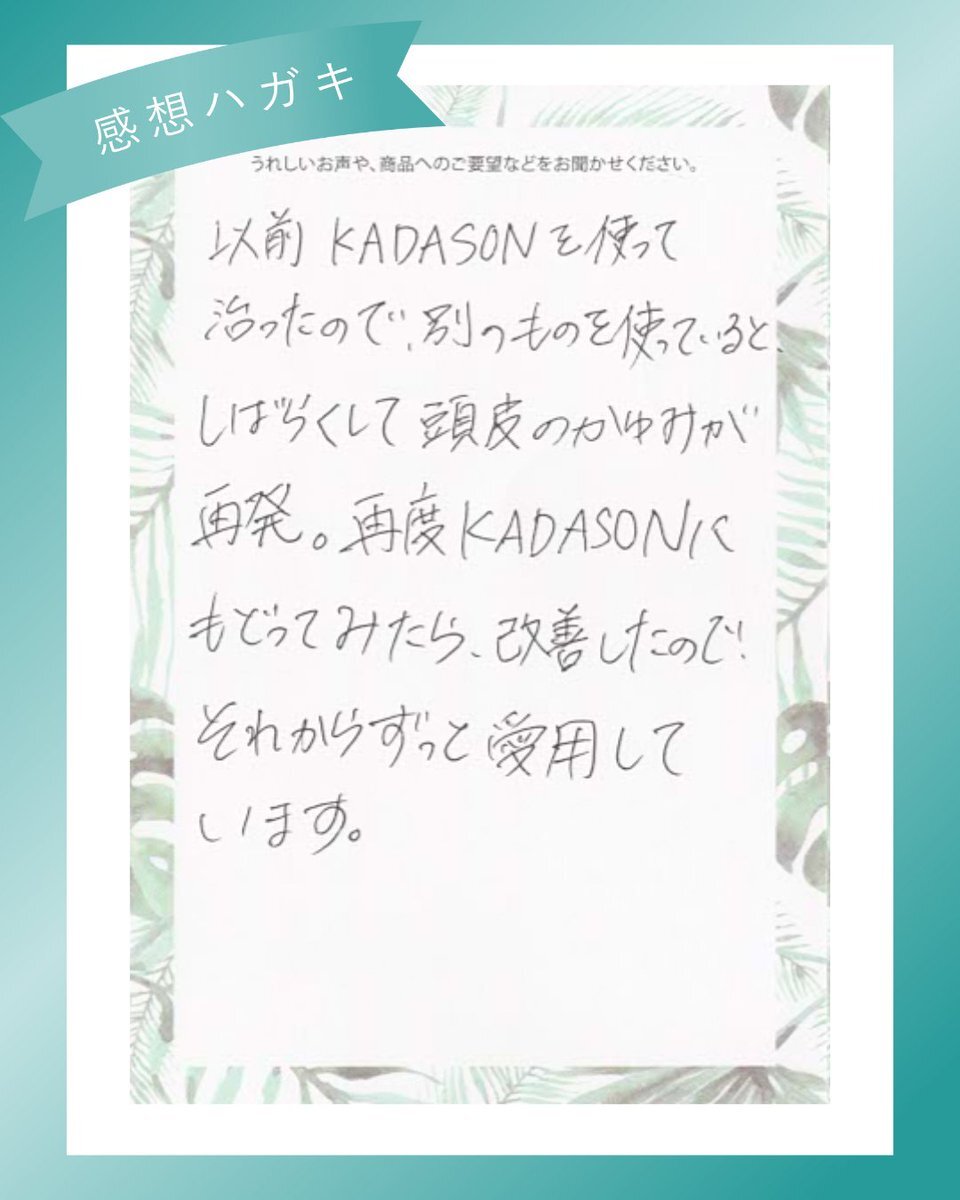 感想ハガキ
うれしいお声や、商品へのご要望などをお聞かせください。
以前KADASONを使って
治ったので、別のものを使っていると、
しばらくして頭皮のかゆみが
再発。再度KADASONに
もどってみたら、改善したので
それからずっと愛用して
います。